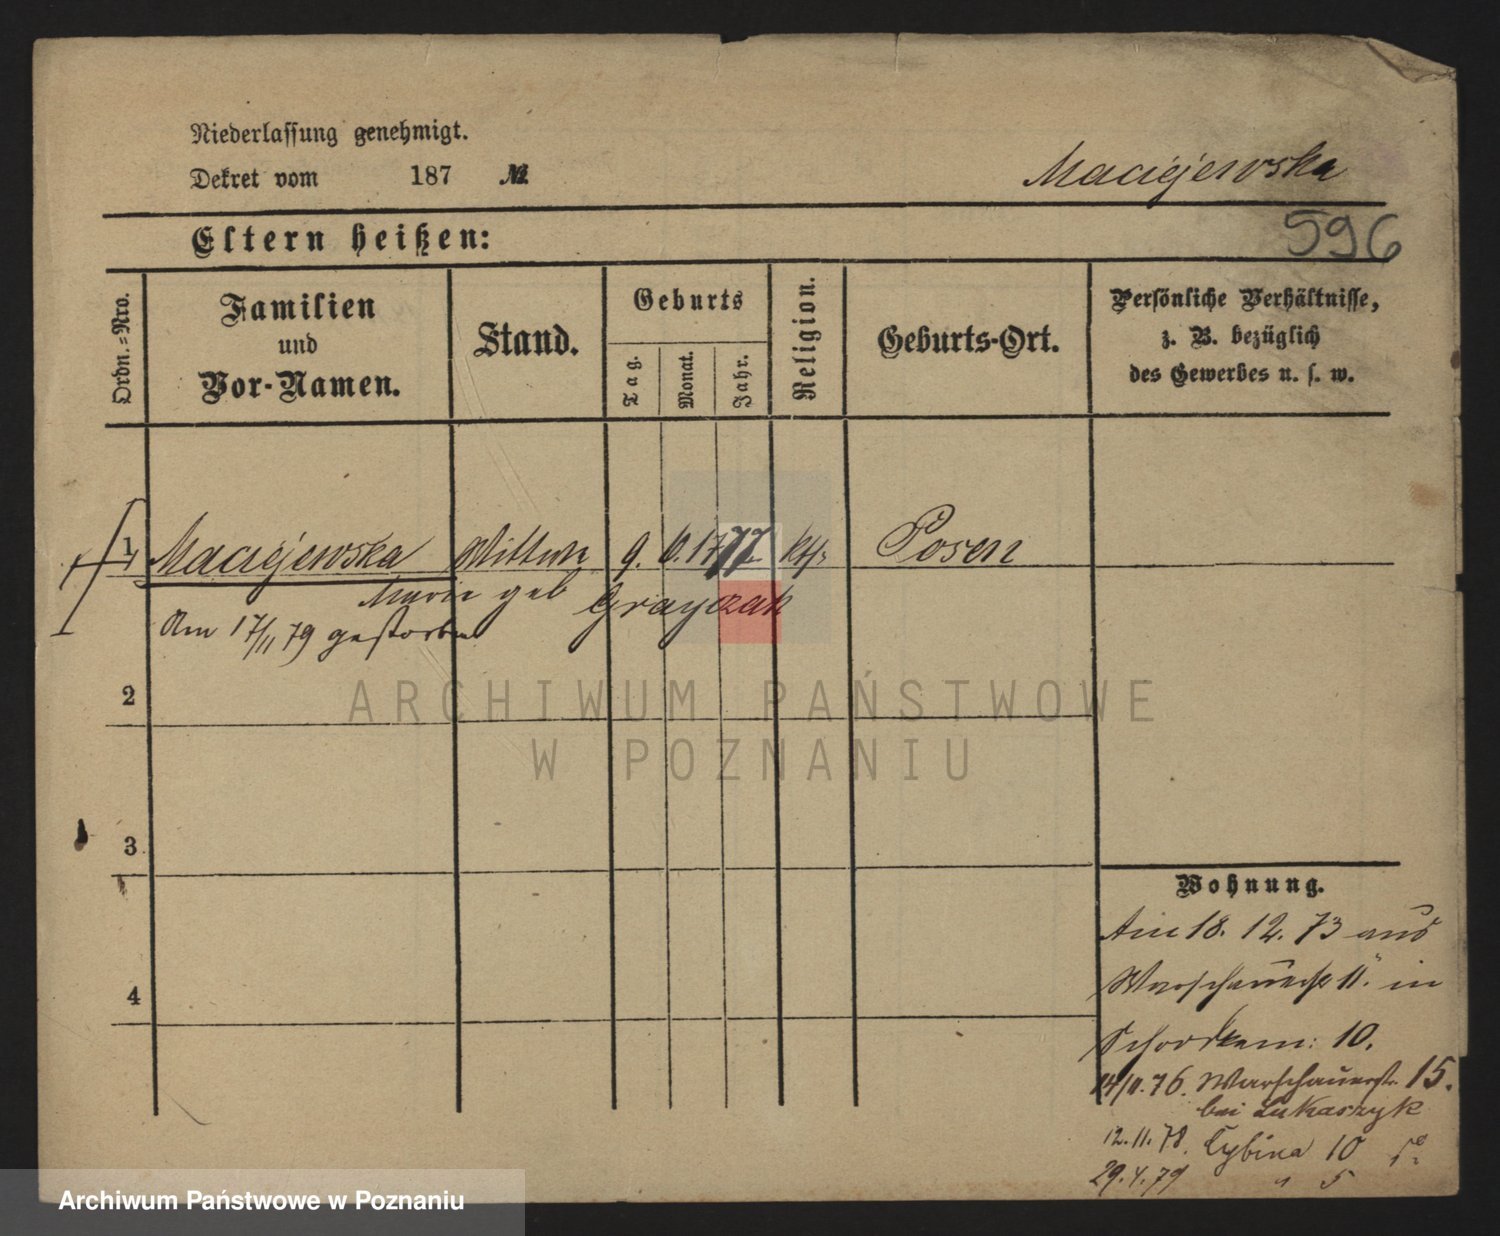 Niederlassung genehmigt.
Dekret vom 187 №
Maciejewska
596
Eltern heißen:
Ordn.-Nro.
Familien
und
Vor-Namen.
Stand.
Geburts
Tag.
Monat.
Jahr.
Religion.
Geburts-Ort.
Persönliche Verhältnisse,
z. B. bezüglich
des Gewerbes u. s. w.
1 Maciejewska Wittwe 9. 6. 1777 kth. Posen
Marie geb Grayczak
Am 17/11 79 gestorben
2
ARCHIWUM PAŃSTWOWE
W POZNANIU
3
4
Wohnung.
Am 18. 12. 73 aus
Warschauerstr 11. in
10.
14/11. 76. Warschauerstr. 15.
bei Lukaszyk
12. 11. 78. Cybina 10
29. 4. 79 " 5
Archiwum Państwowe w Poznaniu